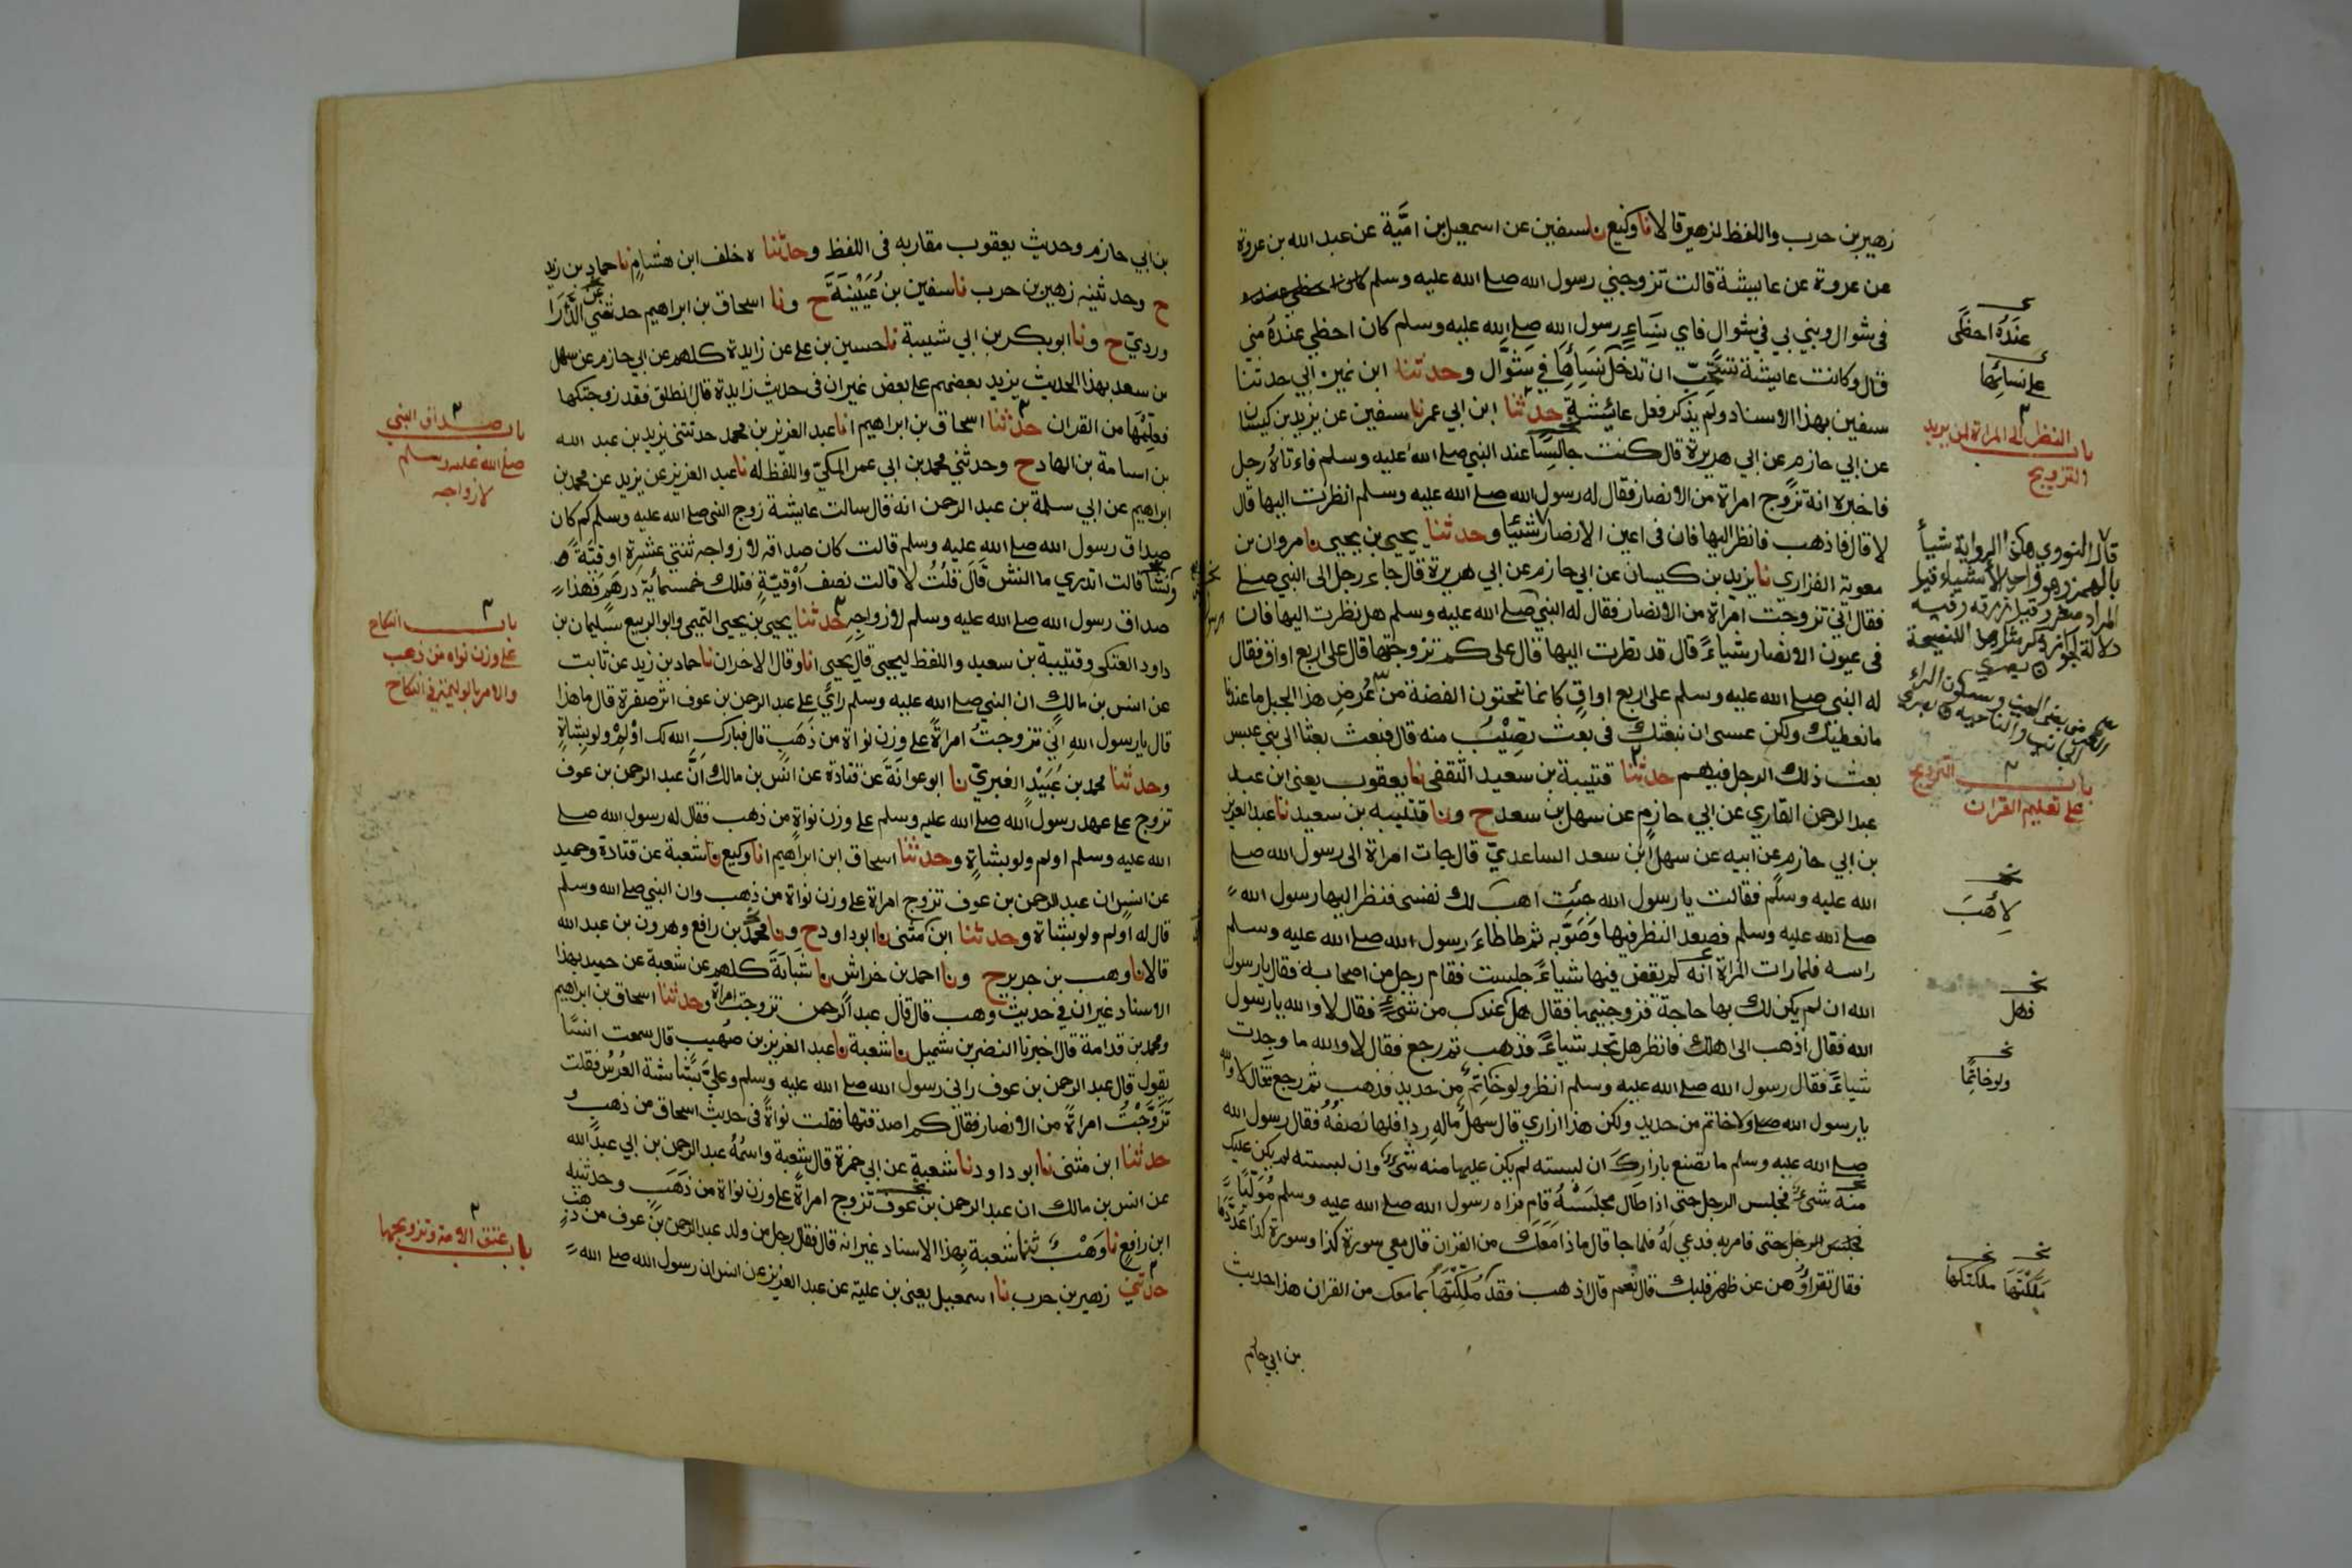 زهير بن حرب واللفظ لزهير قالا نا وكيع نا سفين عن اسمعيل بن اميّة عن عبد الله بن عروة
عن عروة عن عايشة قالت تزوجني رسول الله صلى الله عليه وسلم
فى شوال وبني بي في شوال فاي نساء رسول الله صلى الله عليه وسلم كان احظي عنده مني
قال وكانت عايشة تستحبّ ان تدخل نساءها في شوّال وحدثنا ابن نمير ابي حدثنا
سفين بهذا الاسناد ولم يذكر فعل عائشة حدثنا ابن ابي عمر نا سفين عن يزيد بن كيسان
عن ابي حازم عن ابي هريرة قال كنت جالسًا عند النبي صلى الله عليه وسلم فاءتاه رجل
فاخبره انه تزوج امراة من الانصار فقال له رسول الله صلى الله عليه وسلم انظرت اليها قال
لا قال فاذهب فانظر اليها فان فى اعين الانصار شيئا وحدثنا يحيى بن يحيى نا مروان بن
معوية الفزاري نا يزيد بن كيسان عن ابي حازم عن ابي هريرة قال جاء رجل الى النبي صلى
فقال اني تزوجت امراة من الانصار فقال له النبي صلى الله عليه وسلم هل نظرت اليها فان
فى عيون الانصار شياءً قال قد نظرت اليها قال على كم تزوجتها قال على اربع اواق فقال
له النبي صلى الله عليه وسلم على اربع اواقٍ كانما تنحتون الفضة من عُرض هذا الجبل ما عندنا
ما نعطيك ولكن عسى ان نبعثك فى بعث تصيب منه قال فبعث بعثا الى بني عبس
بعث ذلك الرجل فيهم حدثنا قتيبة بن سعيد الثقفى نا يعقوب يعنى ابن عبد
عبد الرحمن القاري عن ابي حازم عن سهل بن سعد ح ونا قتيبه بن سعيد نا عبد العزيز
بن ابي حازم عن ابيه عن سهل ابن سعد الساعديّ قال جات امراة الى رسول الله صلى
الله عليه وسلم فقالت يا رسول الله جئت اهب لك نفسى فنظر اليها رسول الله
صلى الله عليه وسلم فصعد النظر فيها وصوّبه ثم طاطاء رسول الله صلى الله عليه وسلم
راسه فلما رات المراة انه لم يقض فيها شياءً جلست فقام رجل من اصحابه فقال يا رسول
الله ان لم يكن لك بها حاجة فزوجنيها فقال هل عندك من شيءٍ فقال لا والله يا رسول
الله فقال اذهب الى اهلك فانظر هل تجد شياءً فذهب ثم رجع فقال لا والله ما وجدت
شياءً فقال رسول الله صلى الله عليه وسلم انظر ولو خاتِم من حديد فذهب ثم رجع فقال لا والله
يا رسول الله صلى ولا خاتم من حديد ولكن هذا ازاري قال سهل ماله ردا فلها نصفه فقال رسول الله
صلى الله عليه وسلم ما تصنع بازارك ان لبسته لم يكن عليها منه شيء وان لبسته لم يكن عليك
منه شيء فجلس الرجل حتى اذا طال مجلسه قام فراه رسول الله صلى الله عليه وسلم مُوَلّيًا
حتى فامر به فدعي له فلما جا قال ماذا معك من القران قال معي سورة كذا وسورة كذا عدّدها
فقال تقراؤهن عن ظهر قلبك قال نعم قال اذهب فقد مُلّكتها بما معك من القران هذا حديث
بن ابي حازم
عنده احظى
على نسائها
باب النظر الى المراة لمن يريد
التزويج
قال النووي هكذا الرواية شيأ
بالهمز وهو واحد الاشياء قيل
المراد صغر وقيل زرقة وفيه
دلالة لجواز ذكر مثل هذا للنصيحة
باب التزويج
على تعليم القران
لِأَهَبَ
فهل
ولو خاتمًا
مَلَّكْتَها ملكتكها
بن ابي حازم وحديث يعقوب مقاربه فى اللفظ وحدثنا ه خلف ابن هشامٍ نا حماد بن زيد
ح وحدثنيه زهير بن حرب نا سفين بن عُيَيْنَة ح ونا اسحاق بن ابراهيم عن الدَّرَا
ورديّ ح ونا ابو بكر بن ابي شيبة نا حسين بن على عن زايدة كلهم عن ابي حازم عن سهل
بن سعد بهذا الحديث يزيد بعضهم على بعض غير ان فى حديث زايدة قال انطلق فقد زوجتكها
فعلّمها من القران حدثنا اسحاق بن ابراهيم انا عبد العزيز بن محمد حدثنى يزيد بن عبد الله
بن اسامة بن الهاد ح وحدثني محمد بن ابي عمر المكيّ واللفظ له نا عبد العزيز عن يزيد عن محمد بن
ابراهيم عن ابي سلمة بن عبد الرحمن انه قال سالت عايشة زوج النبي صلى الله عليه وسلم كم كان
صداق رسول الله صلى الله عليه وسلم قالت كان صداقه لازواجه ثنتي عشرة اوقيّة
ونشًّا قالت اتدري ما النش قال قلتُ لا قالت نصف أوقيّةٍ فتلك خمسمائة درهم فهذا
صداق رسول الله صلى الله عليه وسلم لازواجه حدثنا يحيى بن يحيى التميمى وابو الربيع سليمان بن
داود العتكى وقتيبة بن سعيد واللفظ ليحيى قال يحيى انا وقال الاخران نا حماد بن زيد عن ثابت
عن انس بن مالك ان النبي صلى الله عليه وسلم رأي على عبد الرحمن بن عوف اثر صفرة قال ما هذا
قال يا رسول الله انّي تزوجتُ امراةً على وزن نواة من ذَهَبٍ قال فبارك الله لك اَوْلِمْ ولو بشاةٍ
وحدثنا محمد بن عُبَيْدٍ الغبريّ نا ابو عوانة عن قتادة عن انس بن مالك انّ عبد الرحمن بن عوف
تزوج على عهد رسول الله صلى الله عليه وسلم على وزن نواةٍ من ذهب فقال له رسول الله صلى
الله عليه وسلم اولم ولو بشاةٍ وحدثنا اسحاق ابن ابراهيم انا وكيع نا شعبة عن قتادة وحميد
عن انس ان عبد الرحمن بن عوف تزوج امراة على وزن نواة من ذهب وان النبي صلى الله وسلم
قال له اولم ولو بشاة وحدثنا ابن مثنى نا ابو داود ح ونا محمد بن رافع وهرون بن عبد الله
قالا نا وهب بن جرير ح ونا احمد بن خراش نا شبابَةَ كلهم عن شعبة عن حميد بهذا
الاسناد غير ان في حديث وهب قال قال عبد الرحمن تزوجت امراة وحدثنا اسحاق بن ابراهيم
ومحمد بن قدامة قالا اخبرنا النضر بن شميل نا شعبة نا عبد العزيز بن صُهيب قال سمعت انسًا
يقول قال عبد الرحمن بن عوف راني رسول الله صلى الله عليه وسلم وعليّ بشاشة العُرُس فقلت
تَزَوَّجْتُ امراةً من الانصار فقال كم اصدقتها فقلت نواةً فى حديث اسحاق من ذهب و
حدثنا ابن مثنى نا ابو داود نا شعبة عن ابي حمزة قال شعبة واسمُهُ عبد الرحمن بن ابي عبد الله
عن انس بن مالك ان عبد الرحمن بن عوف تزوج امراةً على وزن نواة من ذَهَبٍ وحدثنيه
ابن رافع نا وَهْبٌ ثنا شعبة بهذا الاسناد غير انه قال فقال رجل من ولد عبد الرحمن بن عوف من ذهب
حدثني زهير بن حرب نا اسمعيل يعنى بن علية عن عبد العزيز عن انس ان رسول الله صلى الله
باب صداق النبي
صلى الله عليه وسلم
لازواجه
باب النكاح
على وزن نواه من ذهب
والامر بالوليمة في النكاح
باب عتق الامة وتزويجها